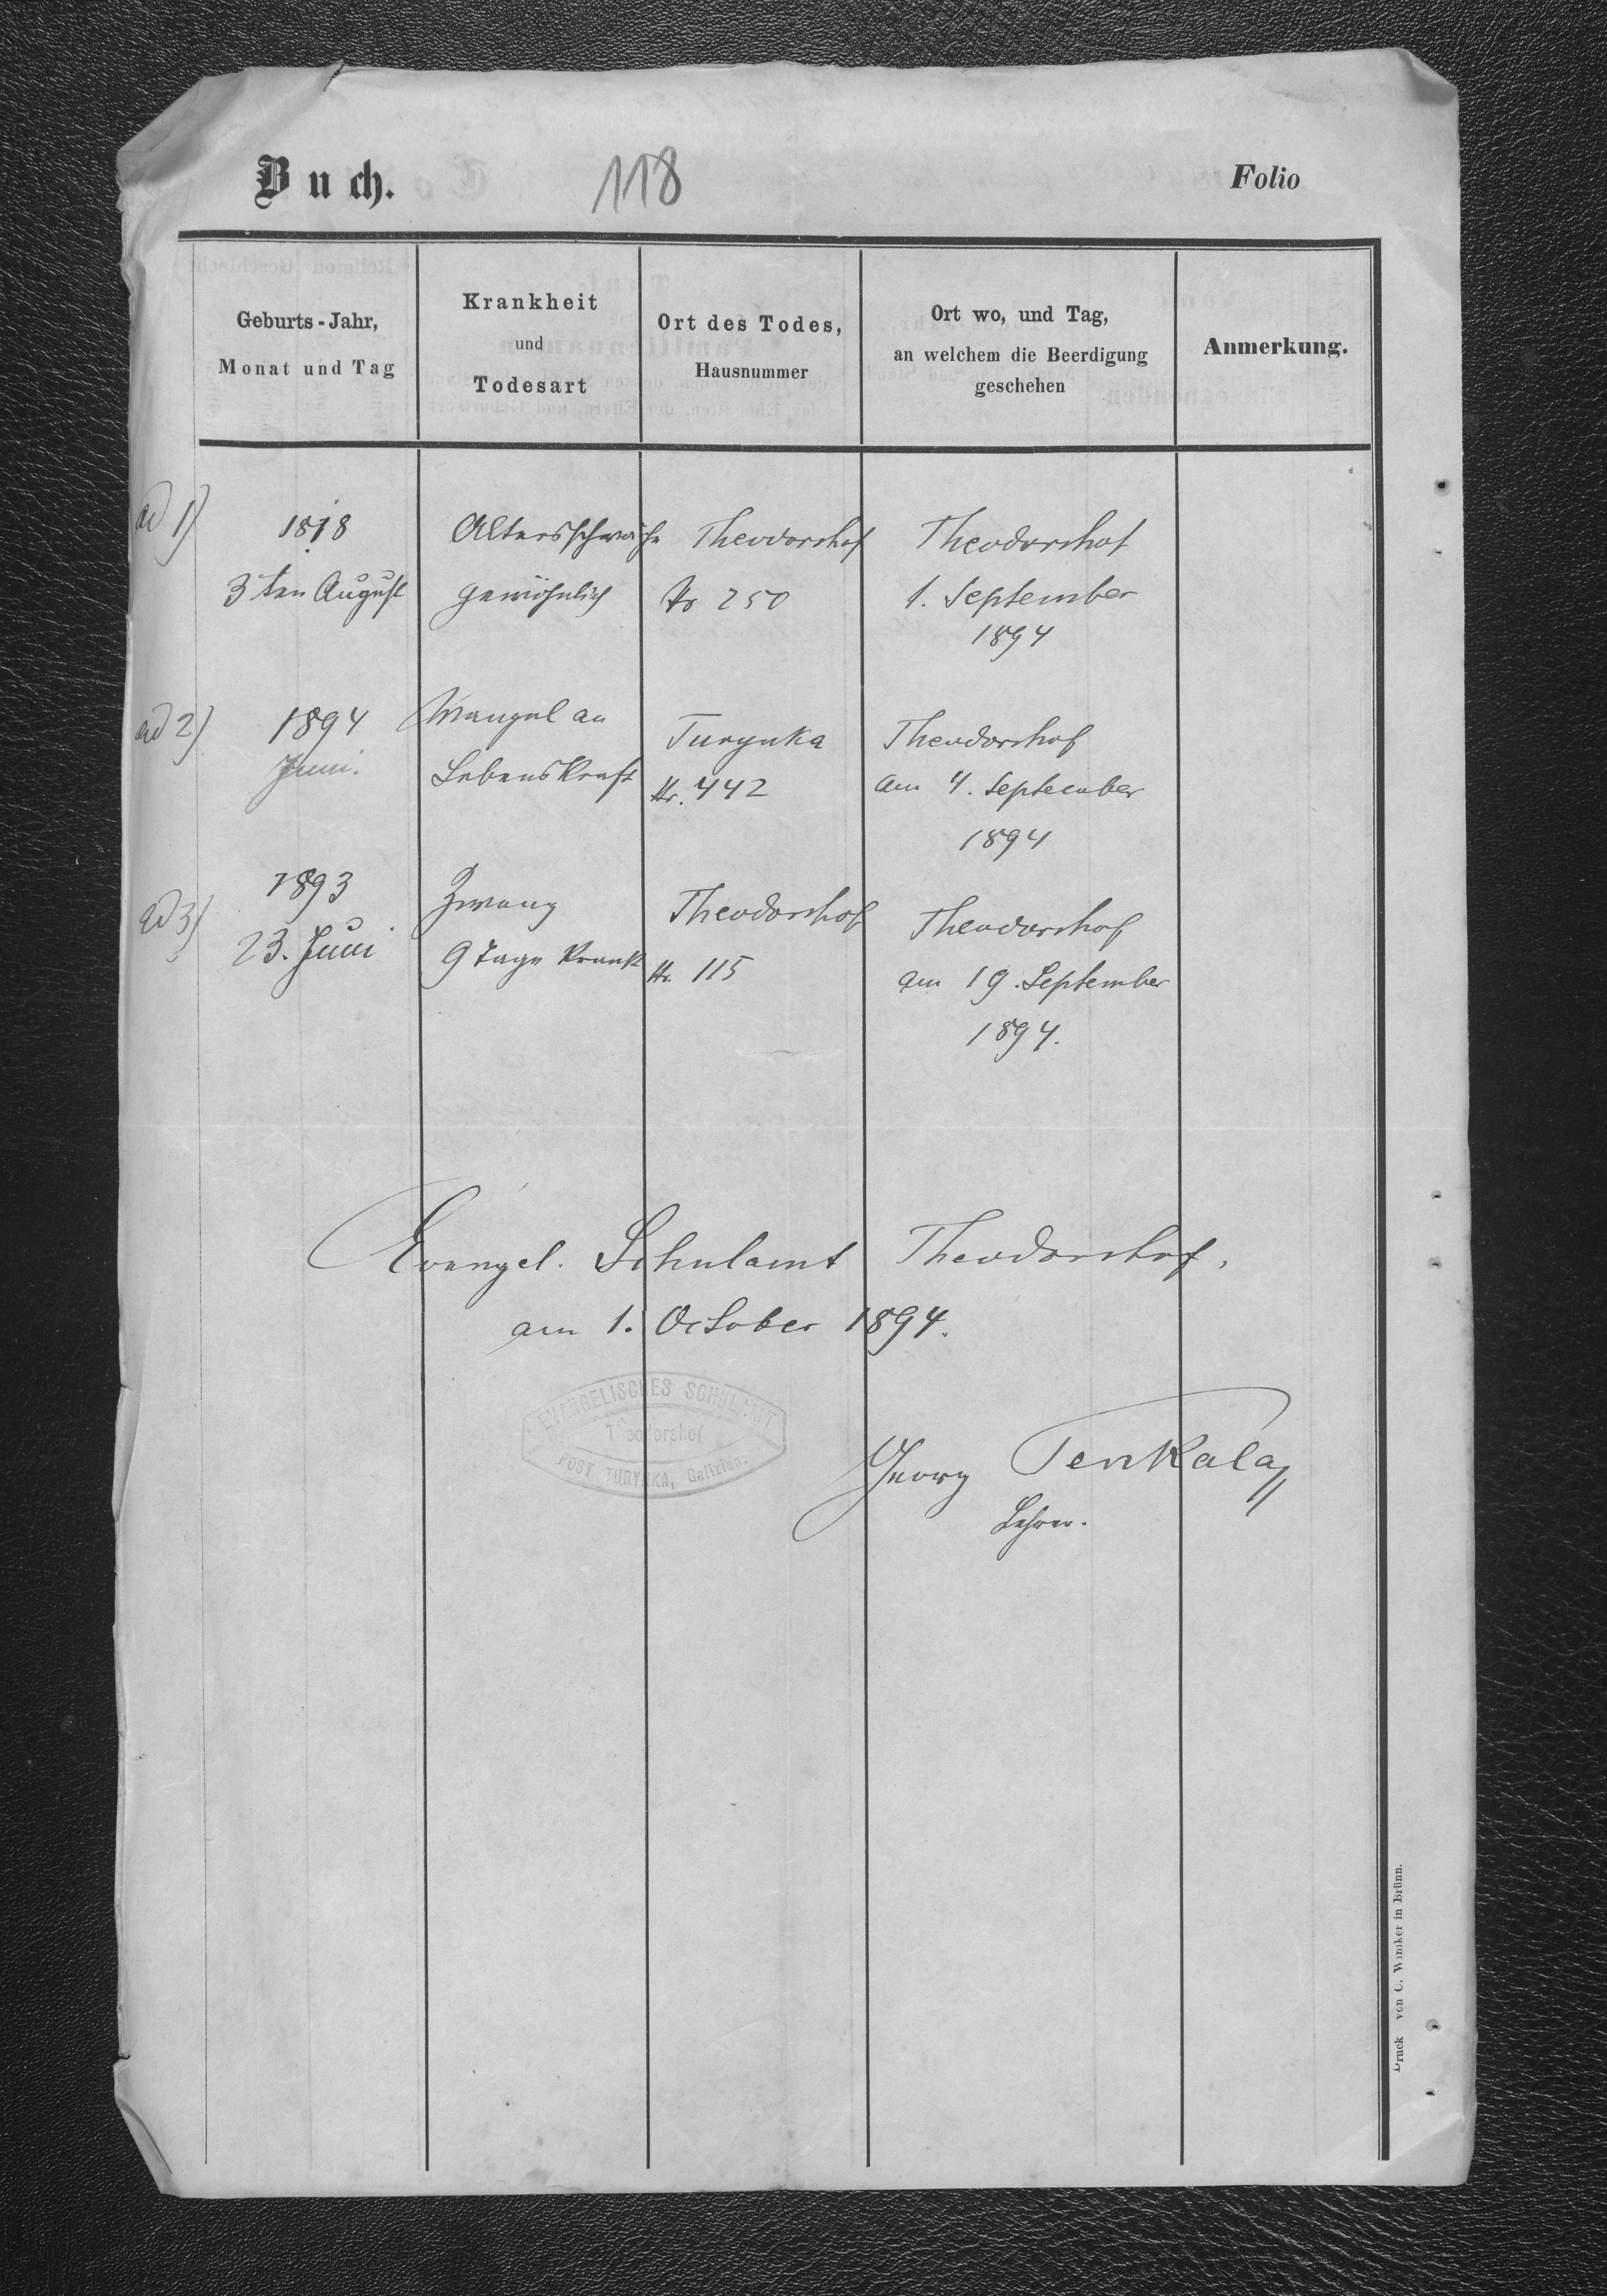 Buch. 118 Folio
Geburts-Jahr,
Monat und Tag
Krankheit
und
Todesart
Ort des Todes,
Hausnummer
Ort wo, und Tag,
an welchem die Beerdigung
geschehen
Anmerkung.
ad 1) 1818 Altersschwäche Theodorshof Theodorshof
3ten August gewöhnlich Nr 250 1. September
1894
ad 2) 1894 Mangel an Turynka Theodorshof
Juni. Lebenskraft Nr. 442 am 4. September
1894
ad 3) 1893 Zwang Theodorshof Theodorshof
23. Juni 9 Tage krank Nr. 115 am 19. September
1894.
Evangel. Schulamt Theodorshof,
am 1. October 1894.
EVANGELISCHES SCHULAMT
Theodorshof
POST TURYNKA, Galizien.
Georg Tenkala
Lehrer.
Druck von C. Winiker in Brünn.